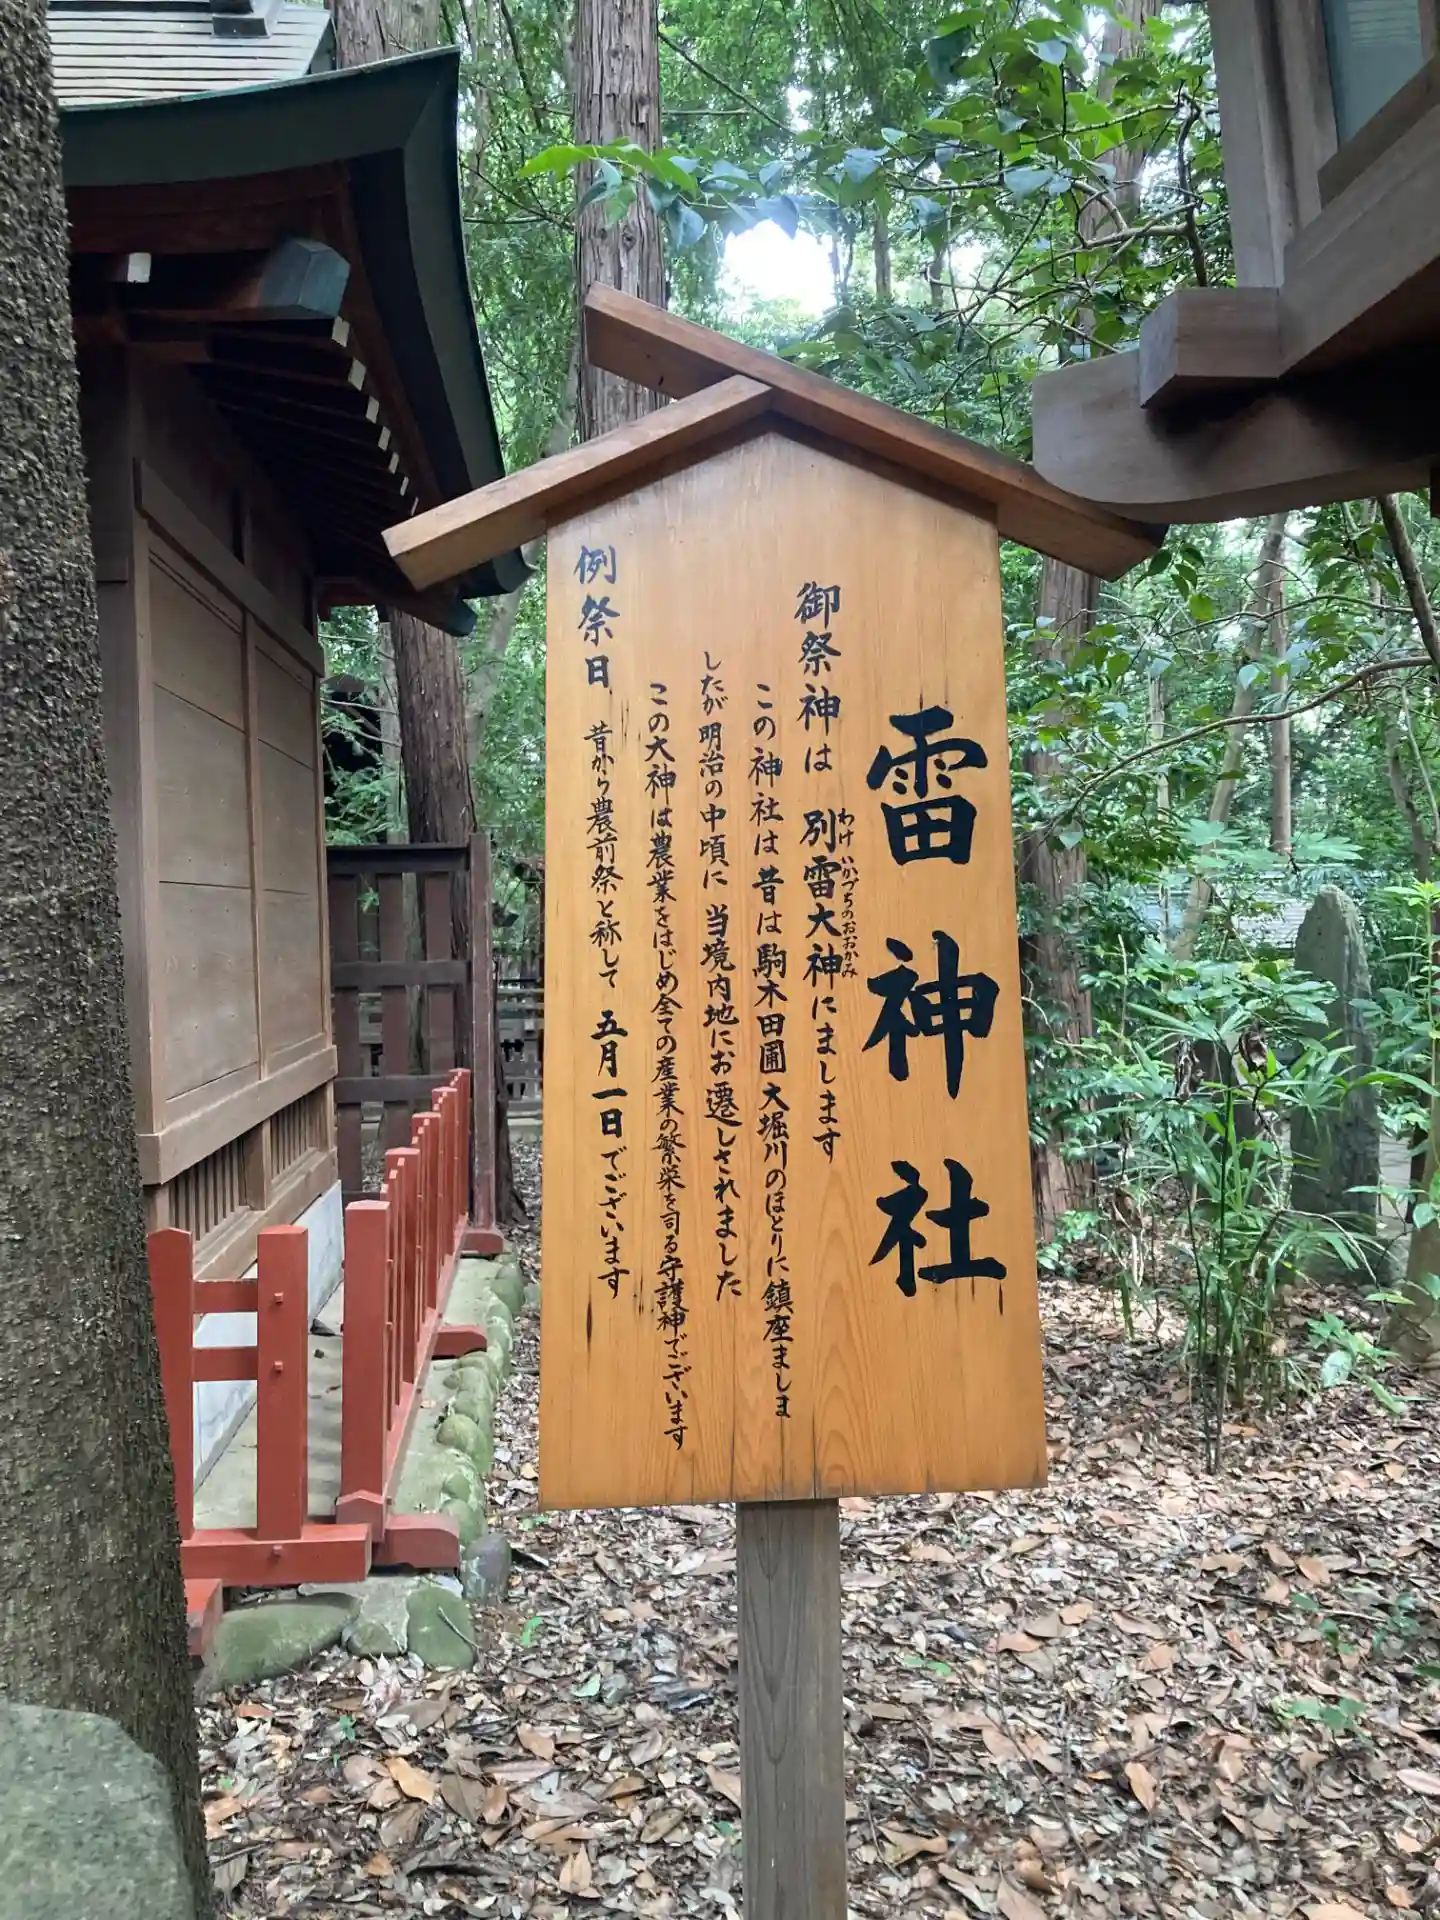 雷神社
御祭神は 別雷大神にまします
わけいかづちのおおかみ
この神社は昔は駒木田圃大堀川のほとりに鎮座ましま
したが明治の中頃に当境内地にお遷しされました
この大神は農業をはじめ全ての産業の繁栄を司る守護神でございます
例祭日 昔から農前祭と称して 五月一日でございます